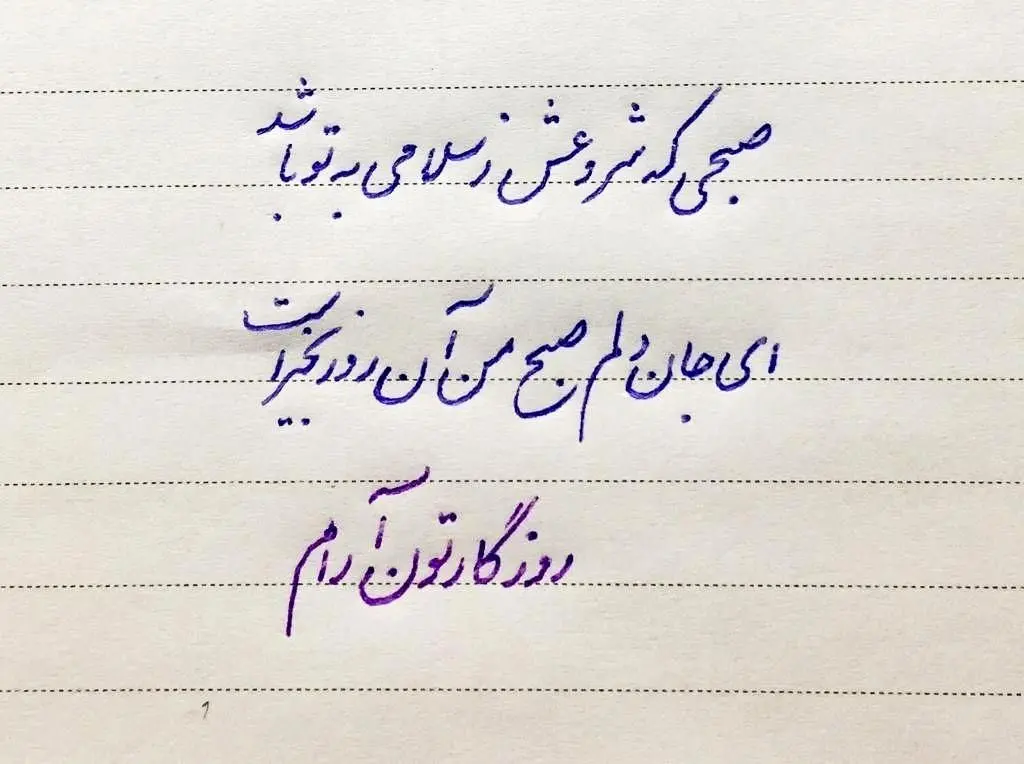 صبحی که شروعش ز سلامی به تو باشد
ای جان و دلم صبح من آن روز بخیر است
روزگارتون آرام